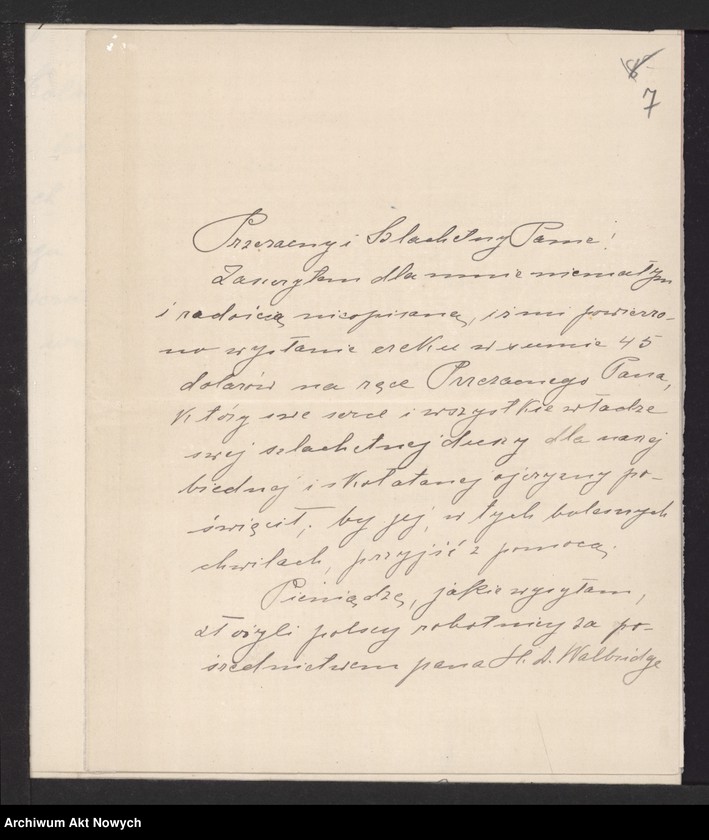 7
Przezacny i Szlachetny Panie!
Zaszczytem dla mnie niemałym
i radością nieopisaną, iż mi powierzo-
no wysłanie czeku w sumie 45
dolarów na ręce Przezacnego Pana,
który swe serce i wszystkie władze
swej szlachetnej duszy dla naszej
biednej i skołatanej ojczyzny po-
święcił, by jej, w tych bolesnych
chwilach, przyjść z pomocą.
Pieniądze, jakie wysyłam,
złożyli polscy robotnicy za po-
średnictwem pana H. D. Walbridge
Archiwum Akt Nowych